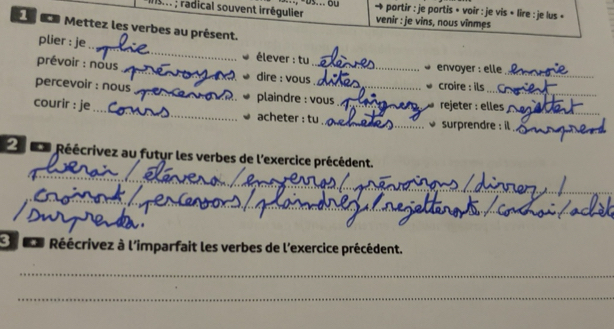 ; radical souvent irrégulier
→ partir : je partis • voir : je vis • lire : je lus •
venir : je vins, nous vînmes
1 Mettez les verbes au présent.
plier : je plie • élever : tu élèves • envoyer : elle envoie
prévoir : nous prévoyons • dire : vous dites • croire : ils croient
percevoir : nous percevons • plaindre : vous plaignez • rejeter : elles rejettent
courir : je cours • acheter : tu achètes • surprendre : il surprend
2 Réécrivez au futur les verbes de l'exercice précédent.
/ élèvera / enverras / prévoirons / direz /
croiront / / plaindrez / rejetteront / /
/ surprendra.
3 Réécrivez à l'imparfait les verbes de l'exercice précédent.